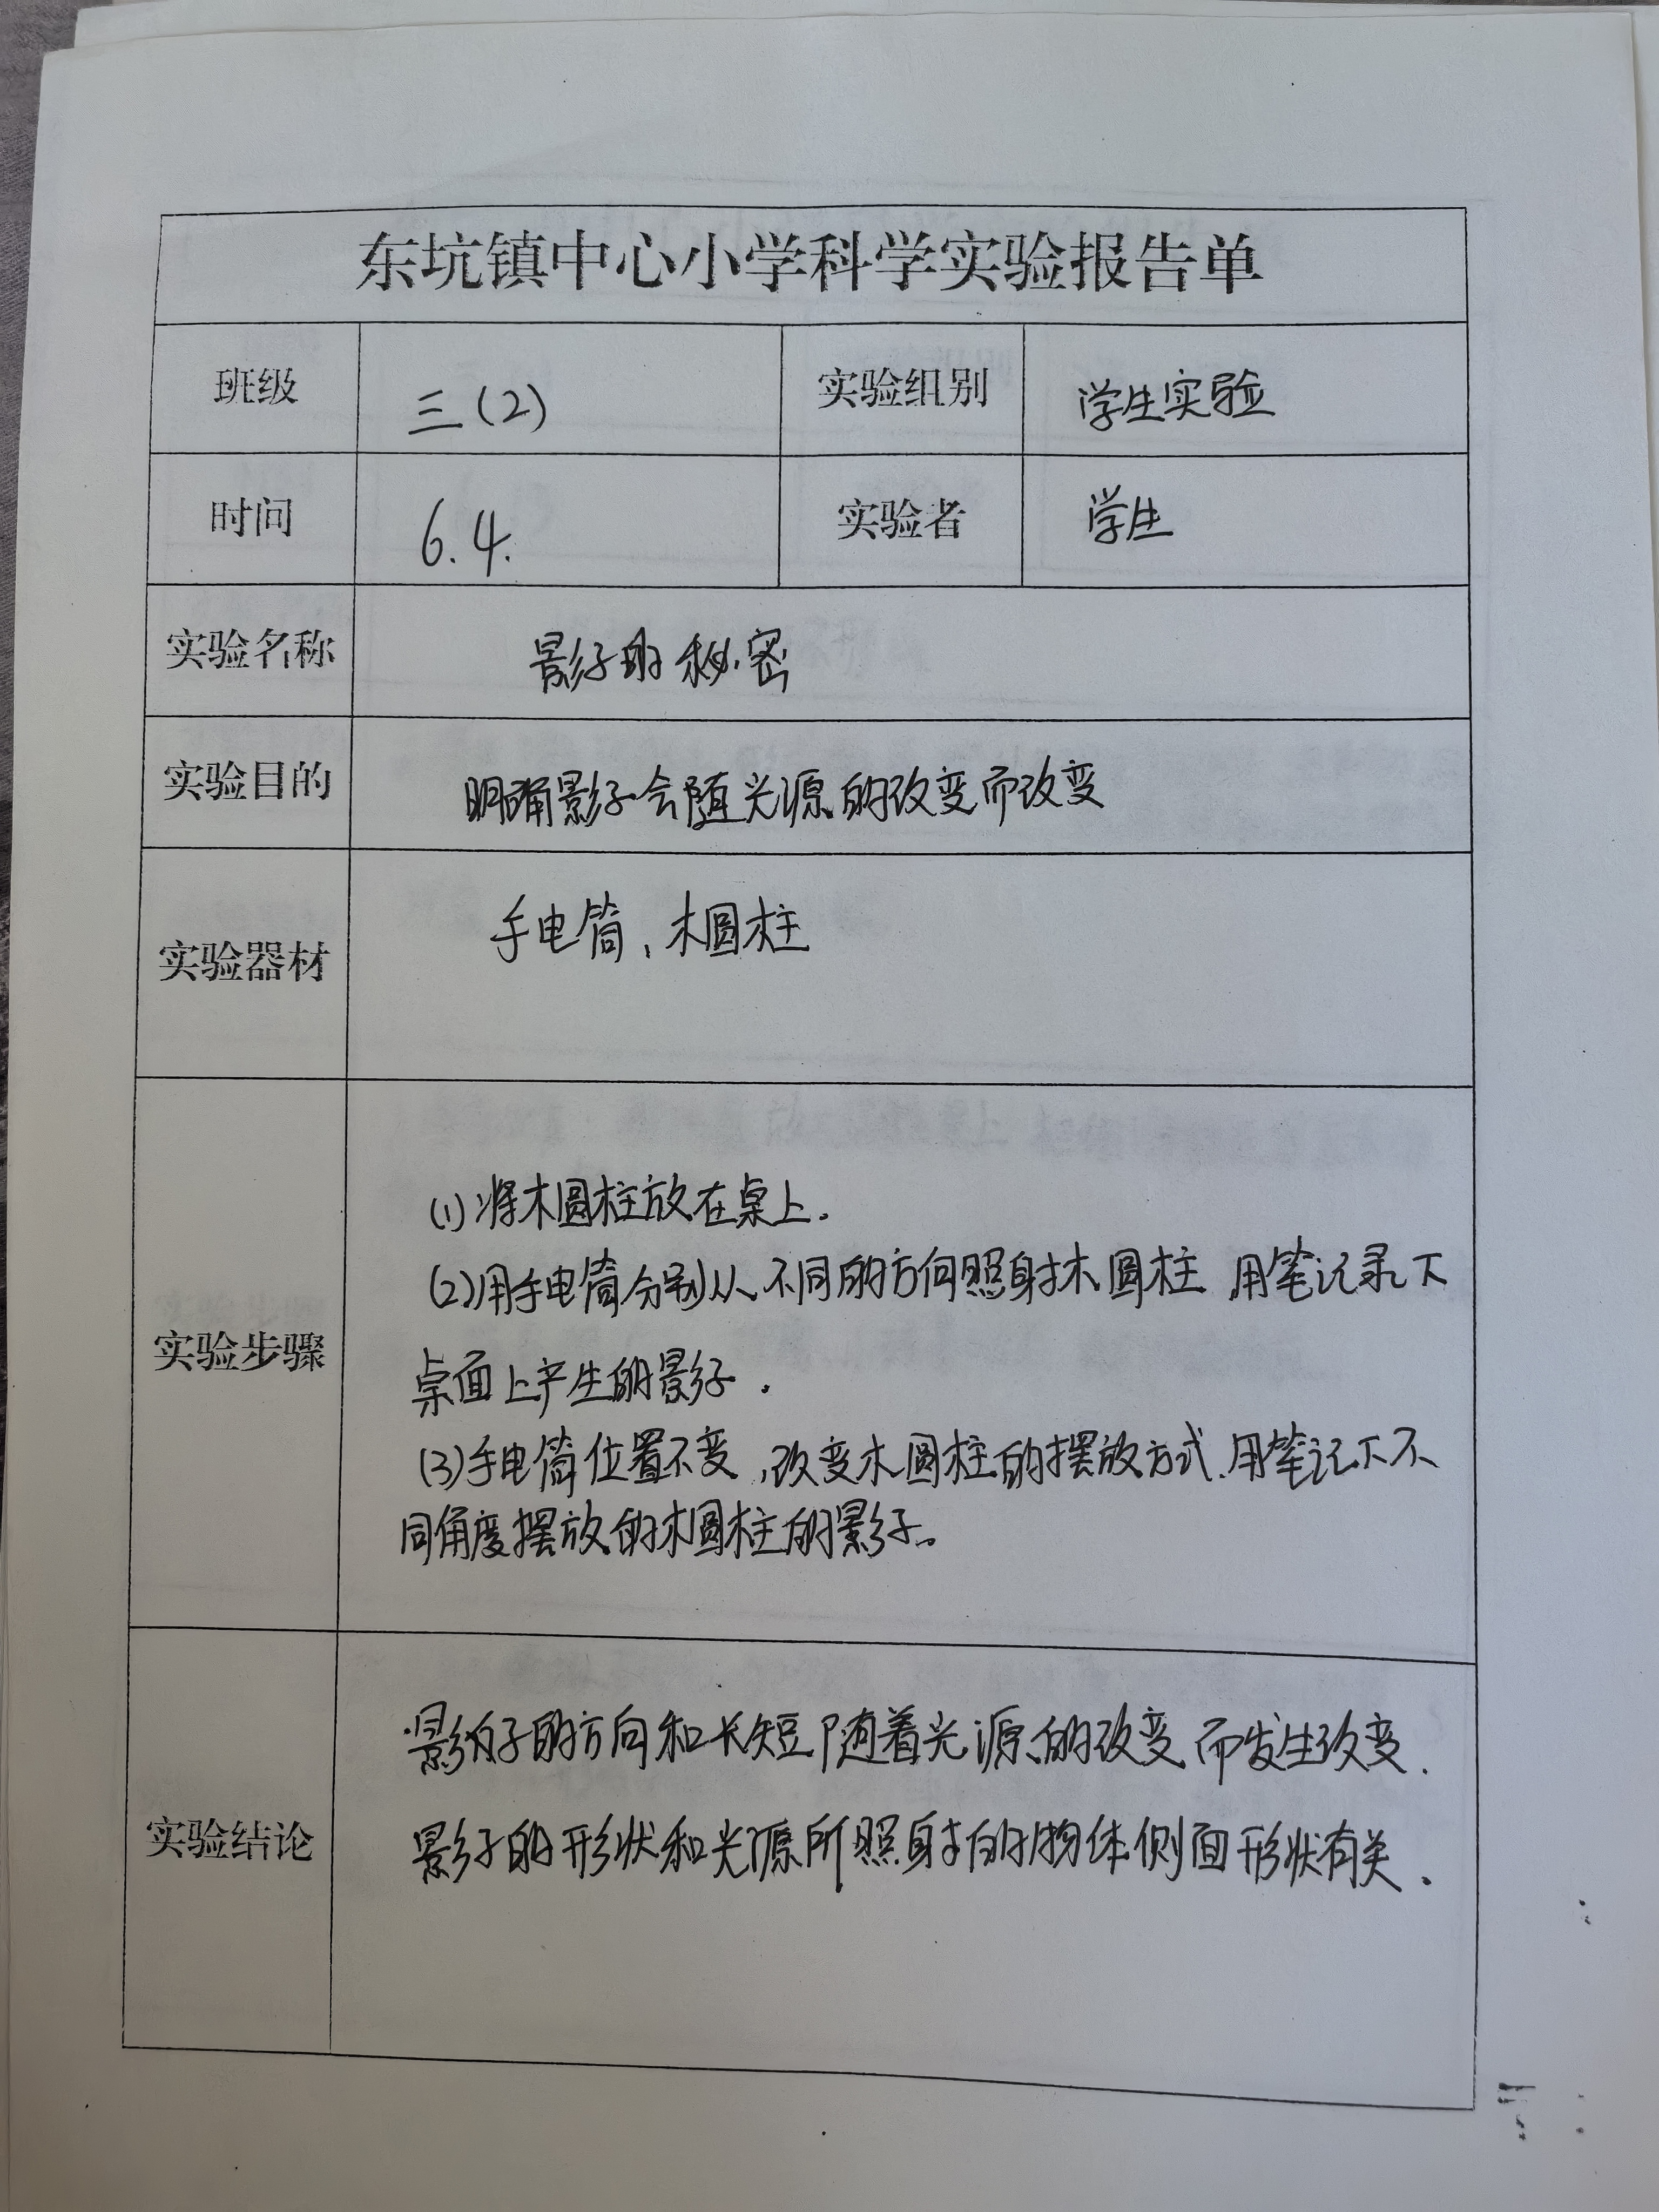 东坑镇中心小学科学实验报告单
班级 三(2) 实验组别 学生实验
时间 6.4. 实验者 学生
实验名称 影子的秘密
实验目的 明确影子会随光源的改变而改变
实验器材 手电筒、木圆柱
实验步骤
(1)将木圆柱放在桌上.
(2)用手电筒分别从不同的方向照射木圆柱 用笔记录下
桌面上产生的影子.
(3)手电筒位置不变,改变木圆柱的摆放方式.用笔记下不
同角度摆放的木圆柱的影子。
实验结论
影的子的方向和长短随着光源的改变而发生改变.
影子的形状和光源所照射的物体侧面形状有关.